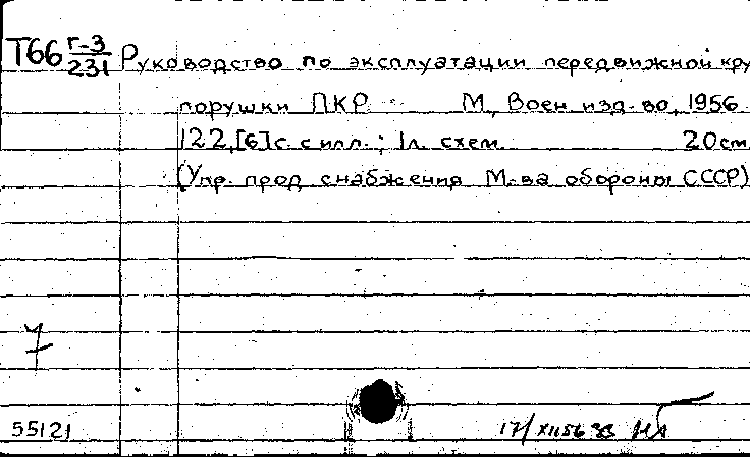 Т66 Г-3/231 Руководство по эксплуатации передвижной кру
порушки ПКР М., Воен. изд-во, 1956.
122,[6]с. с илл.; 1л. схем. 20см
(Упр. прод. снабжения М-ва обороны СССР)
7
55121
17/XII56